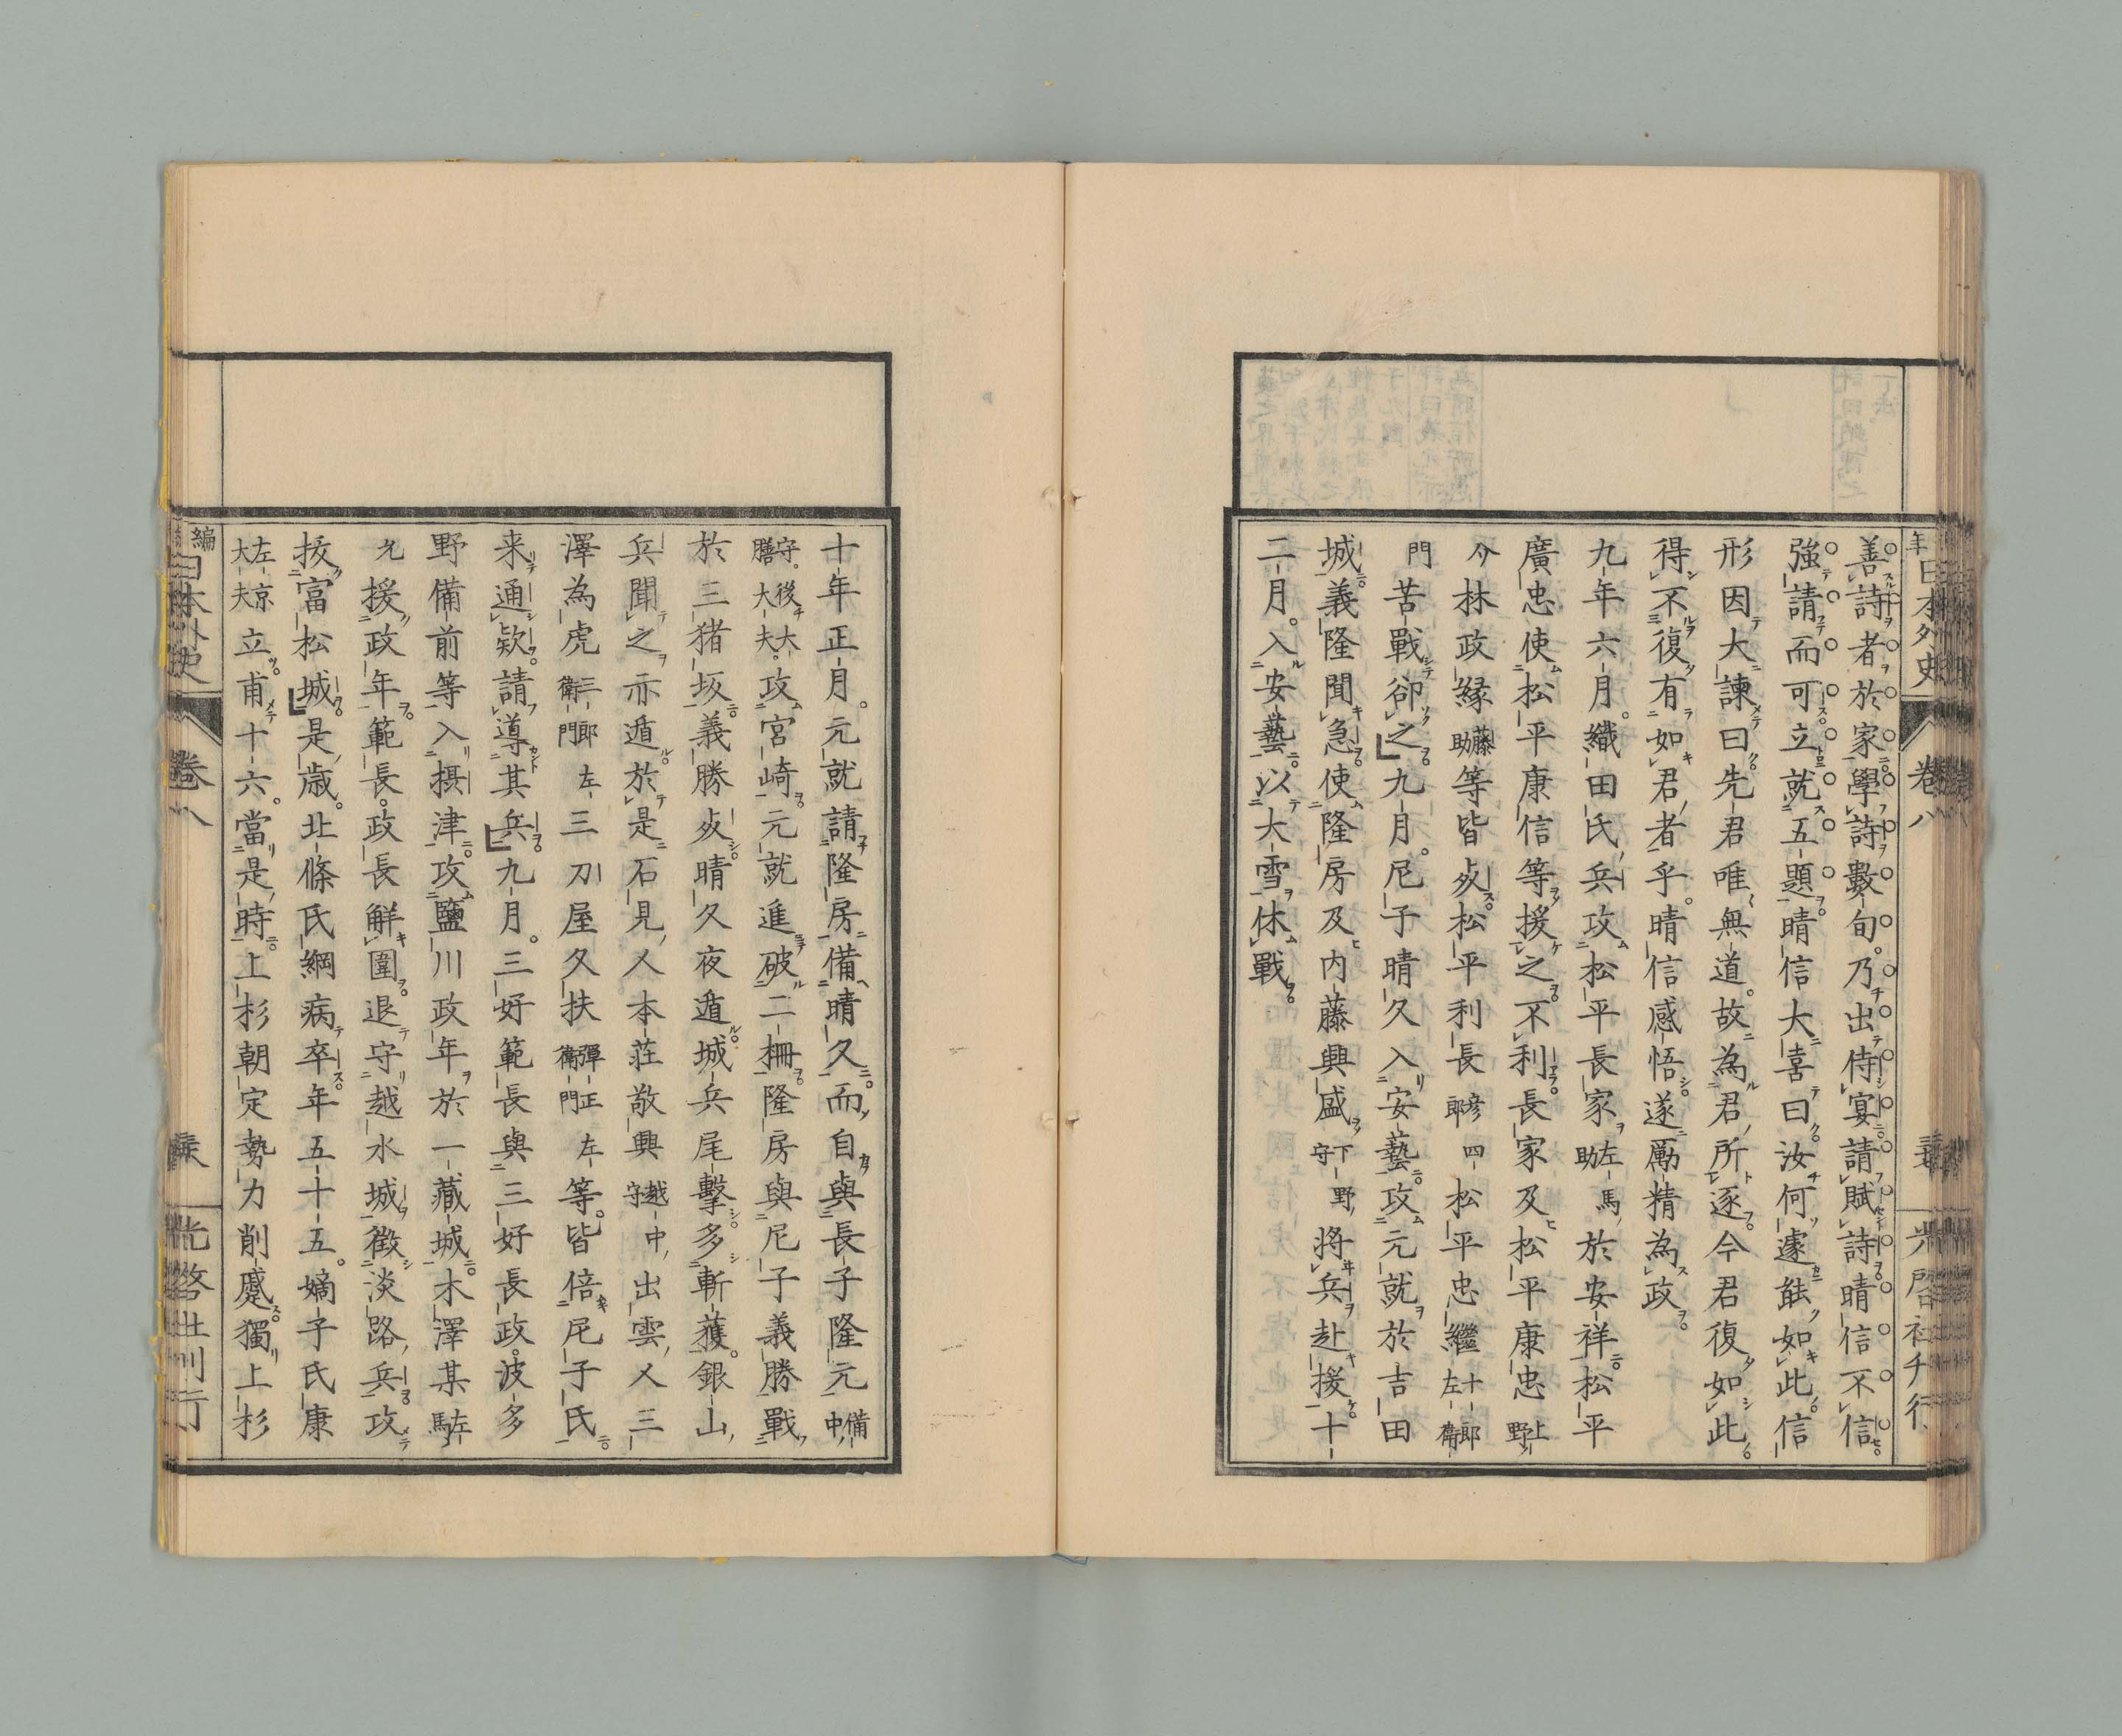 善詩者於家學詩數句。乃出侍宴請賦詩晴信不信
強請而可立就五題晴信大喜曰汝何遽能如此信
形因大諫曰先君唯無道。故為君所逐今君復如此
得不復有如君者乎。晴信感悟遂勵精為政
九年六月。織田氏兵攻松平長家左馬助於安祥松平
廣忠使松平康信等援之不利長家及松平康忠上野
今林政緣藤助等皆死松平利長彥四郎松平忠繼十郎左衛
門苦戰卻之」九月。尼子晴久入安藝攻元就於吉田
城義隆聞急使隆房及內藤興盛下野守將兵赴援十
二月。入安藝以大雪休戰
十年正月。元就請隆房備晴久而自與長子隆元備中
守。後大膳大夫攻宮崎元就進破二柵隆房與尼子義勝戰
於三猪坂義勝死晴久夜遁城兵尾擊多斬獲。銀山
兵聞之亦遁於是石見人本莊敬興越中守出雲人三
澤為虎三郎左衛門三刀屋久扶彈正左衛門等皆倍尼子氏
来通欵請導其兵」九月。三好範長與三好長政波多
野備前等入摂津攻鹽川政年於一藏城木澤某左馬
允援政年範長。政長解圍退守越水城徵淡路兵攻
拔富松城」是歳。北條氏綱病卒年五十五。嫡子氏康
左京大夫立甫十六。當是時上杉朝定勢力削蹙獨上杉
日本外史
卷八